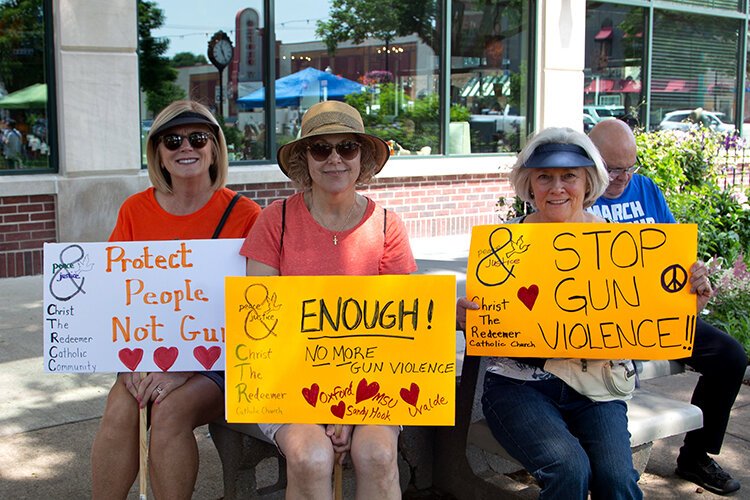 peace
&
justice
Christ
The
Redeemer
Catholic
Community
Protect
People
Not Gu
peace
&
justice
Christ
The
Redeemer
Catholic Church
ENOUGH!
NO MORE
GUN VIOLENCE
Oxford MSU Uvalde
Sandy Hook
peace
&
justice
Christ
The
Redeemer
Catholic Church
STOP
GUN
VIOLENCE!!
MARCH